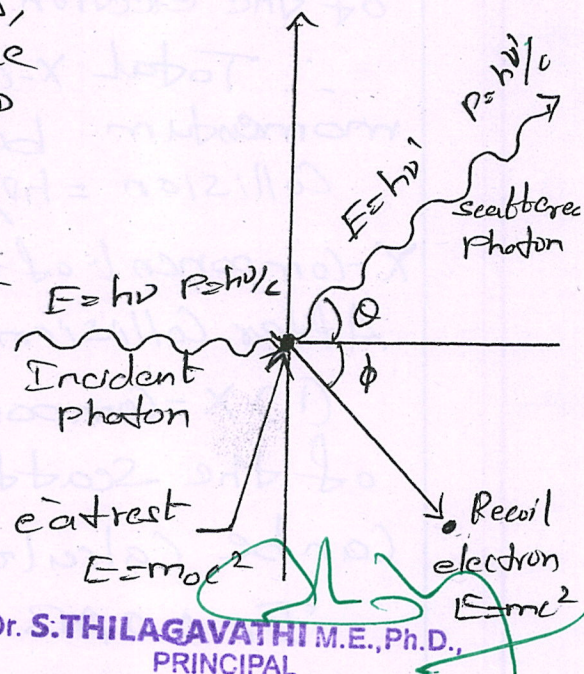 E=hν'
P=hν'/c
Scattered
Photon
E=hν P=hν/c
Incident
photon
θ
ϕ
e⁻ at rest
E=m₀c²
Recoil
electron
E=mc²
Dr. S.THILAGAVATHI M.E.,Ph.D.,
PRINCIPAL